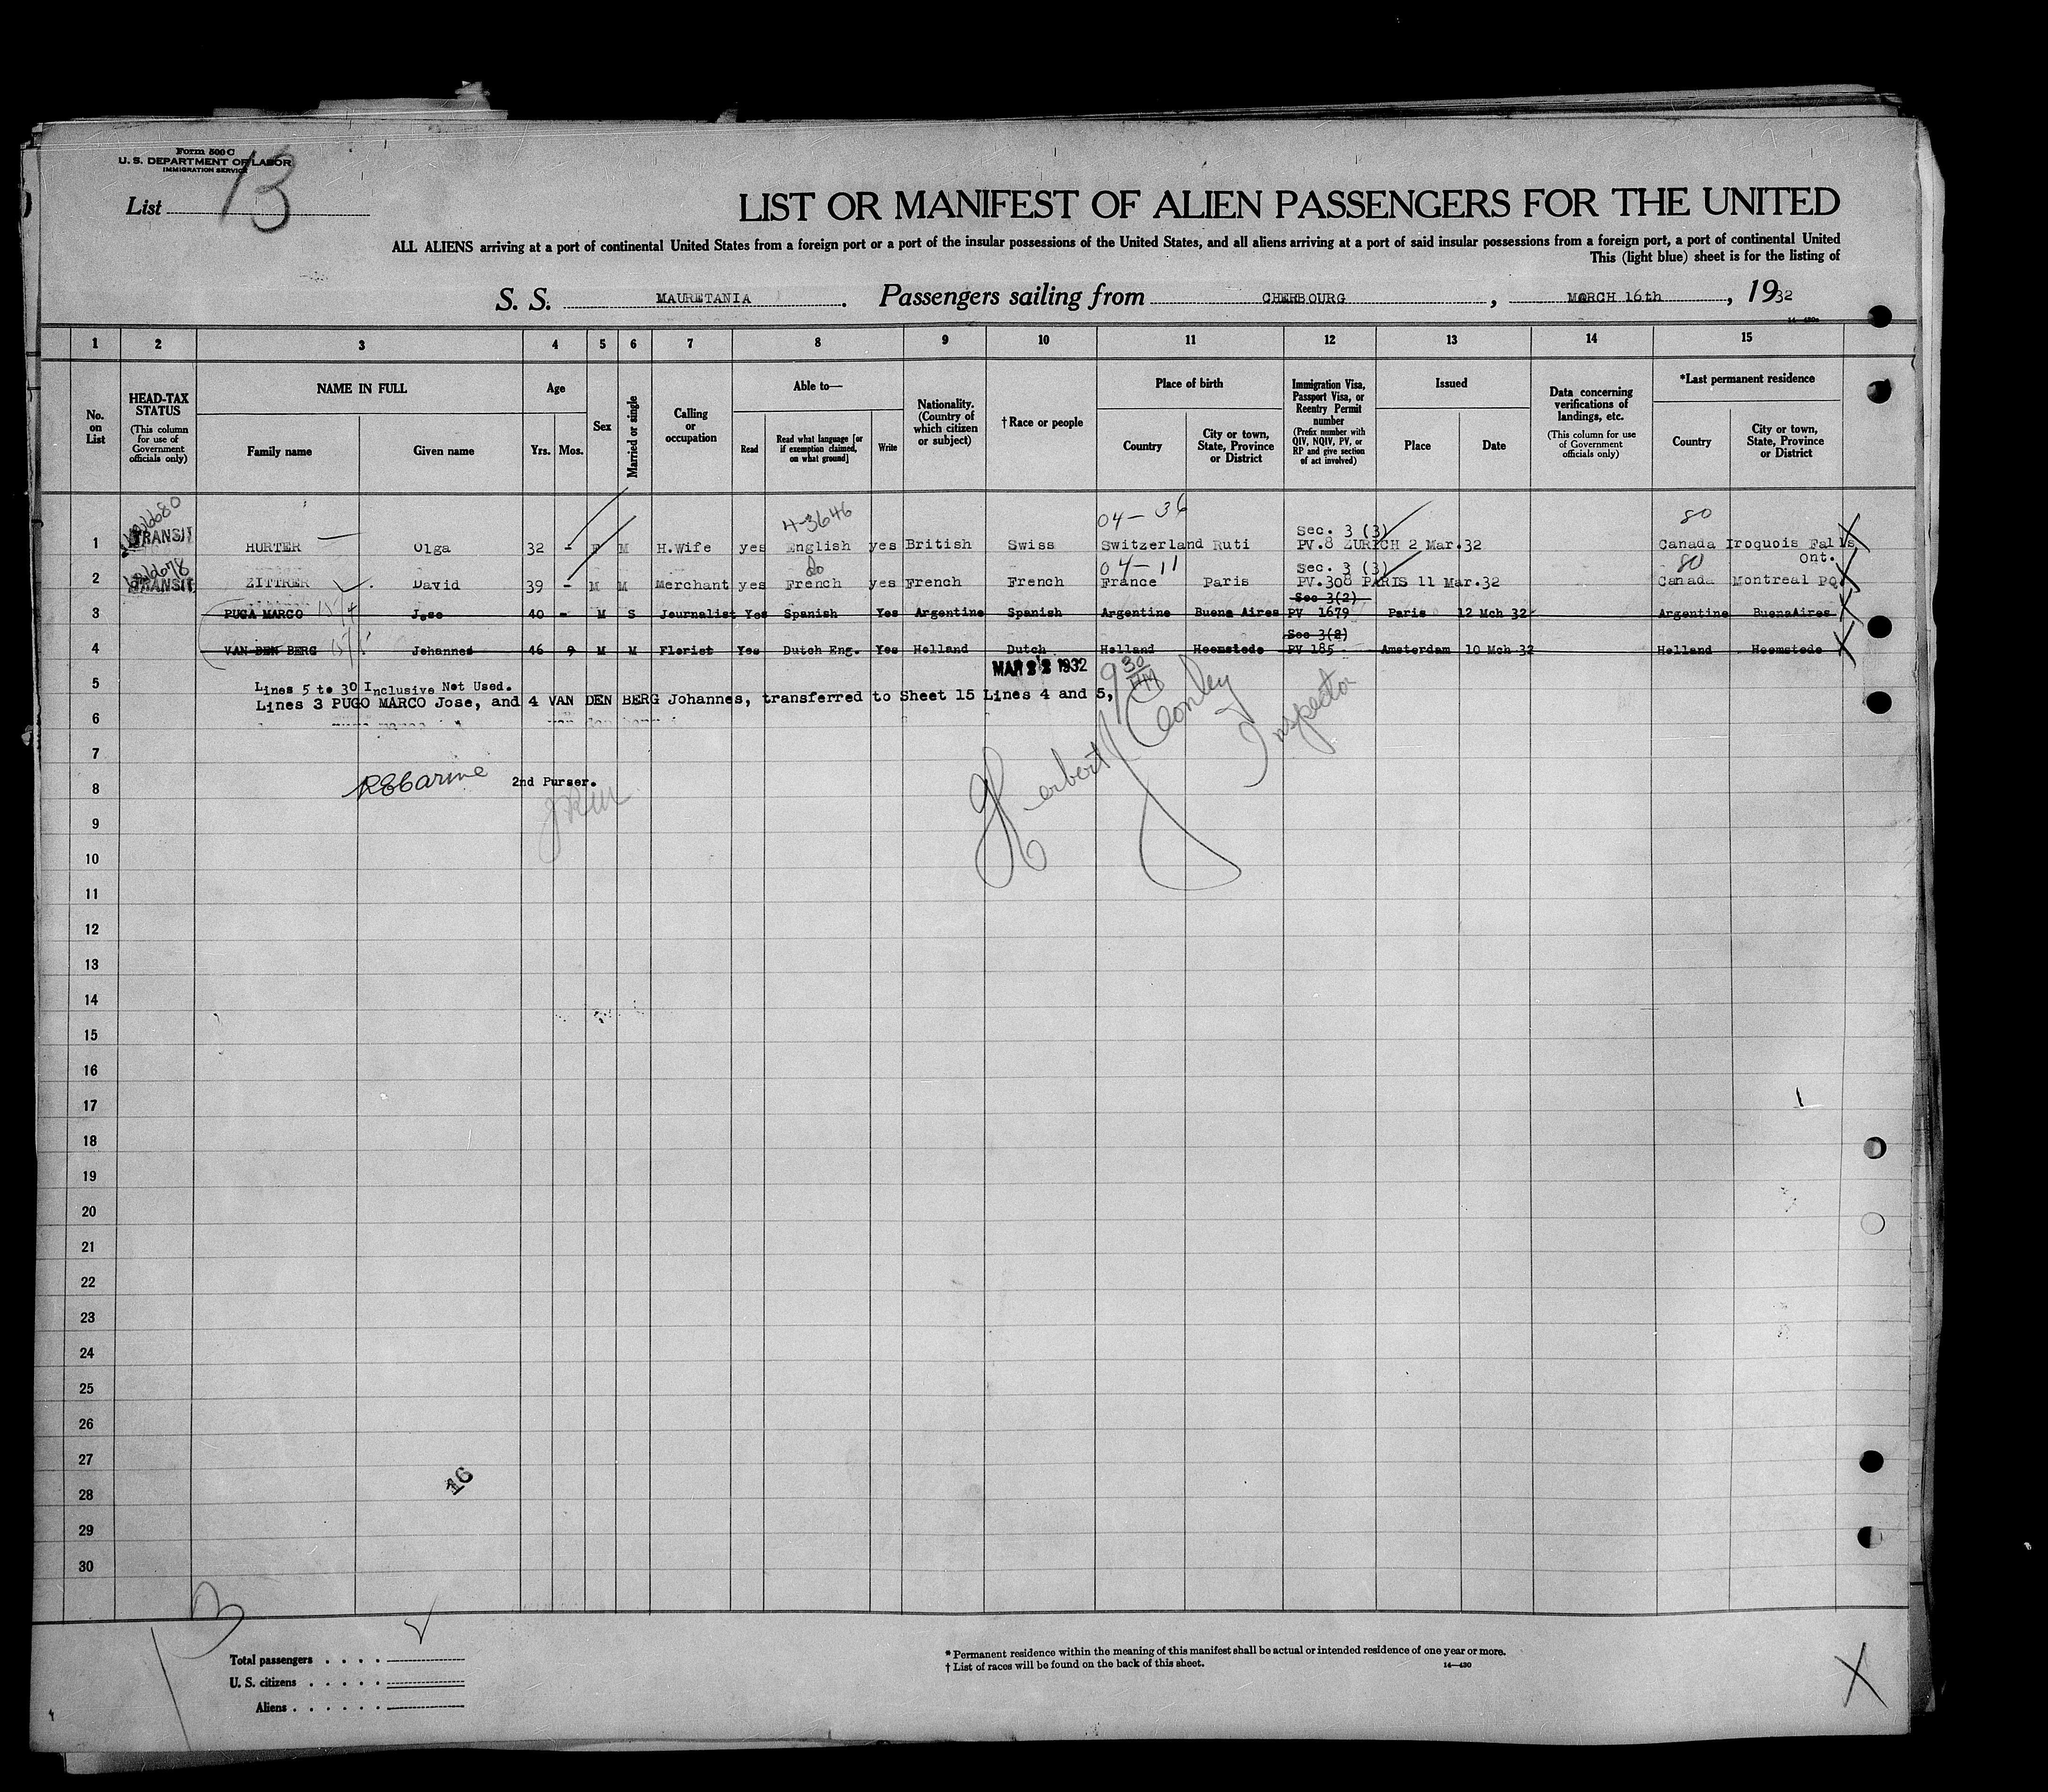 Form 500 C
U. S. DEPARTMENT OF LABOR
IMMIGRATION SERVICE
List 13
LIST OR MANIFEST OF ALIEN PASSENGERS FOR THE UNITED
ALL ALIENS arriving at a port of continental United States from a foreign port or a port of the insular possessions of the United States, and all aliens arriving at a port of said insular possessions from a foreign port, a port of continental United
This (light blue) sheet is for the listing of
S. S. MAURETANIA. Passengers sailing from CHERBOURG, MARCH 16th, 1932
14—430
1 2 3 4 5 6 7 8 9 10 11 12 13 14 15
No. on List
HEAD-TAX STATUS (This column for use of Government officials only)
NAME IN FULL Family name Given name
Age Yrs. Mos.
Sex
Married or single
Calling or occupation
Able to— Read Read what language [or if exemption claimed, on what ground] Write
Nationality. (Country of which citizen or subject)
† Race or people
Place of birth Country City or town, State, Province or District
Immigration Visa, Passport Visa, or Reentry Permit number (Prefix number with QIV, NQIV, PV, or RP and give section of act involved)
Issued Place Date
Data concerning verifications of landings, etc. (This column for use of Government officials only)
*Last permanent residence Country City or town, State, Province or District
4-3646 04 — 36 80
Sec. 3 (3)
1 TRANSIT HURTER Olga 32 - F M H.Wife yes English yes British Swiss Switzerland Ruti PV.8 ZURICH 2 Mar.32 Canada Iroquois Falls Ont.
do 04 — 11 80
Sec. 3 (3)
2 TRANSIT EITTRER David 39 - M M Merchant yes French yes French French France Paris PV.308 PARIS 11 Mar.32 Canada Montreal PQ
Sec 3(2)
3 PUGA MARCO Jose 40 - M S Journalist Yes Spanish Yes Argentine Spanish Argentine Buena Aires PV 1679 Paris 12 Mch 32 Argentine BuenaAires
Sec 3(2)
4 VAN DEN BERG Johannes 46 9 M M Florist Yes Dutch Eng. Yes Holland Dutch Holland Heemstede PV 185 Amsterdam 10 Mch 32 Holland Heemstede
MAR 22 1932 9 30 AM
5 Lines 5 to 30 Inclusive Not Used.
Lines 3 PUGO MARCO Jose, and 4 VAN DEN BERG Johannes, transferred to Sheet 15 Lines 4 and 5,
6
Herbert Conley Inspector
7
8 2nd Purser.
9
10
11
12
13
14
15
16
17
18
19
20
21
22
23
24
25
26
27
28
16
29
30
Total passengers . . . .
U. S. citizens . . . . .
Aliens . . . . . .
* Permanent residence within the meaning of this manifest shall be actual or intended residence of one year or more.
† List of races will be found on the back of this sheet.
14—430